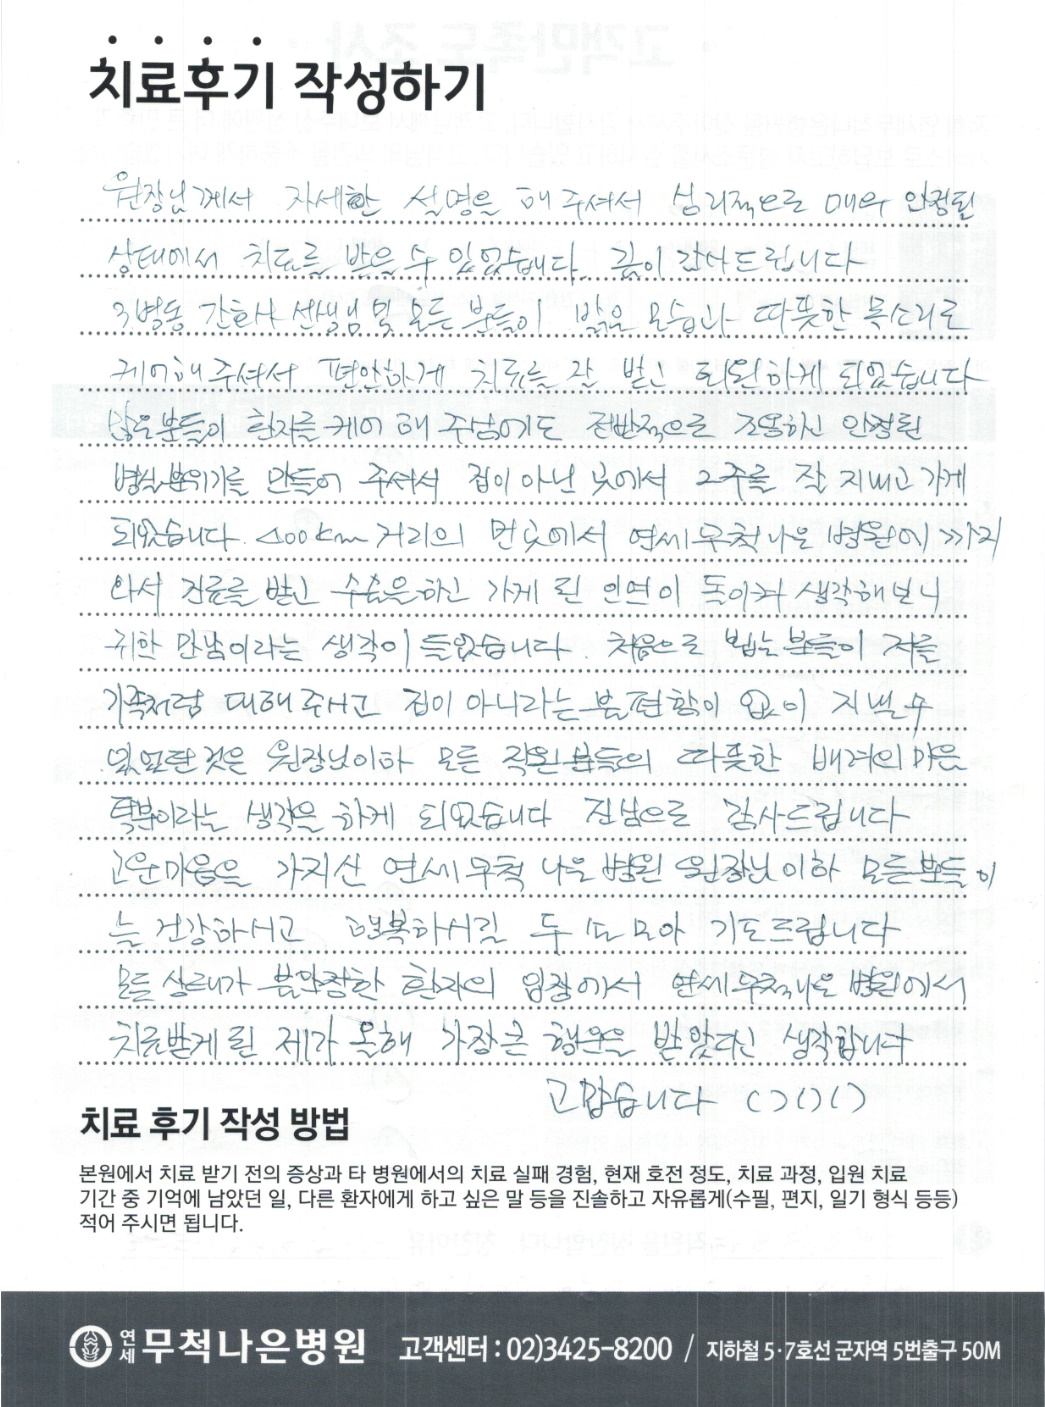 치료후기 작성하기
원장님께서 자세한 설명을 해 주셔서 심리적으로 매우 안정된
상태에서 치료를 받을 수 있었습니다. 깊이 감사드립니다
3병동 간호사 선생님 및 모든 분들이 밝은 모습과 따뜻한 목소리로
케어해 주셔서 편안하게 치료를 잘 받고 퇴원하게 되었습니다
많은 분들이 환자를 케어 해 주심에도 전반적으로 조용하고 안정된
병실분위기를 만들어 주셔서 집이 아닌 곳에서 2주를 잘 지내고 가게
되었습니다. 400km 거리의 먼 곳에서 연세무척나은 병원에 까지
와서 진료를 받고 수술을 하고 가게 된 인연이 돌이켜 생각해보니
귀한 만남이라는 생각이 들었습니다. 처음으로 뵙는 분들이 저를
가족처럼 대해 주시고 집이 아니라는 불편함이 없이 지낼 수
있었던 것은 원장님이하 모든 직원분들의 따뜻한 배려의 마음
덕분이라는 생각을 하게 되었습니다 진심으로 감사드립니다
고운마음을 가지신 연세무척 나은 병원 원장님 이하 모든분들이
늘 건강하시고 행복하시길 두 손 모아 기도드립니다
모든 상태가 불안정한 환자의 입장에서 연세무척나은 병원에서
치료받게 된 제가 올해 가장 큰 행운을 받았다고 생각합니다
고맙습니다
치료 후기 작성 방법
본원에서 치료 받기 전의 증상과 타 병원에서의 치료 실패 경험, 현재 호전 정도, 치료 과정, 입원 치료
기간 중 기억에 남았던 일, 다른 환자에게 하고 싶은 말 등을 진솔하고 자유롭게(수필, 편지, 일기 형식 등등)
적어 주시면 됩니다.
연세 무척나은병원 고객센터 : 02)3425-8200 / 지하철 5·7호선 군자역 5번출구 50M